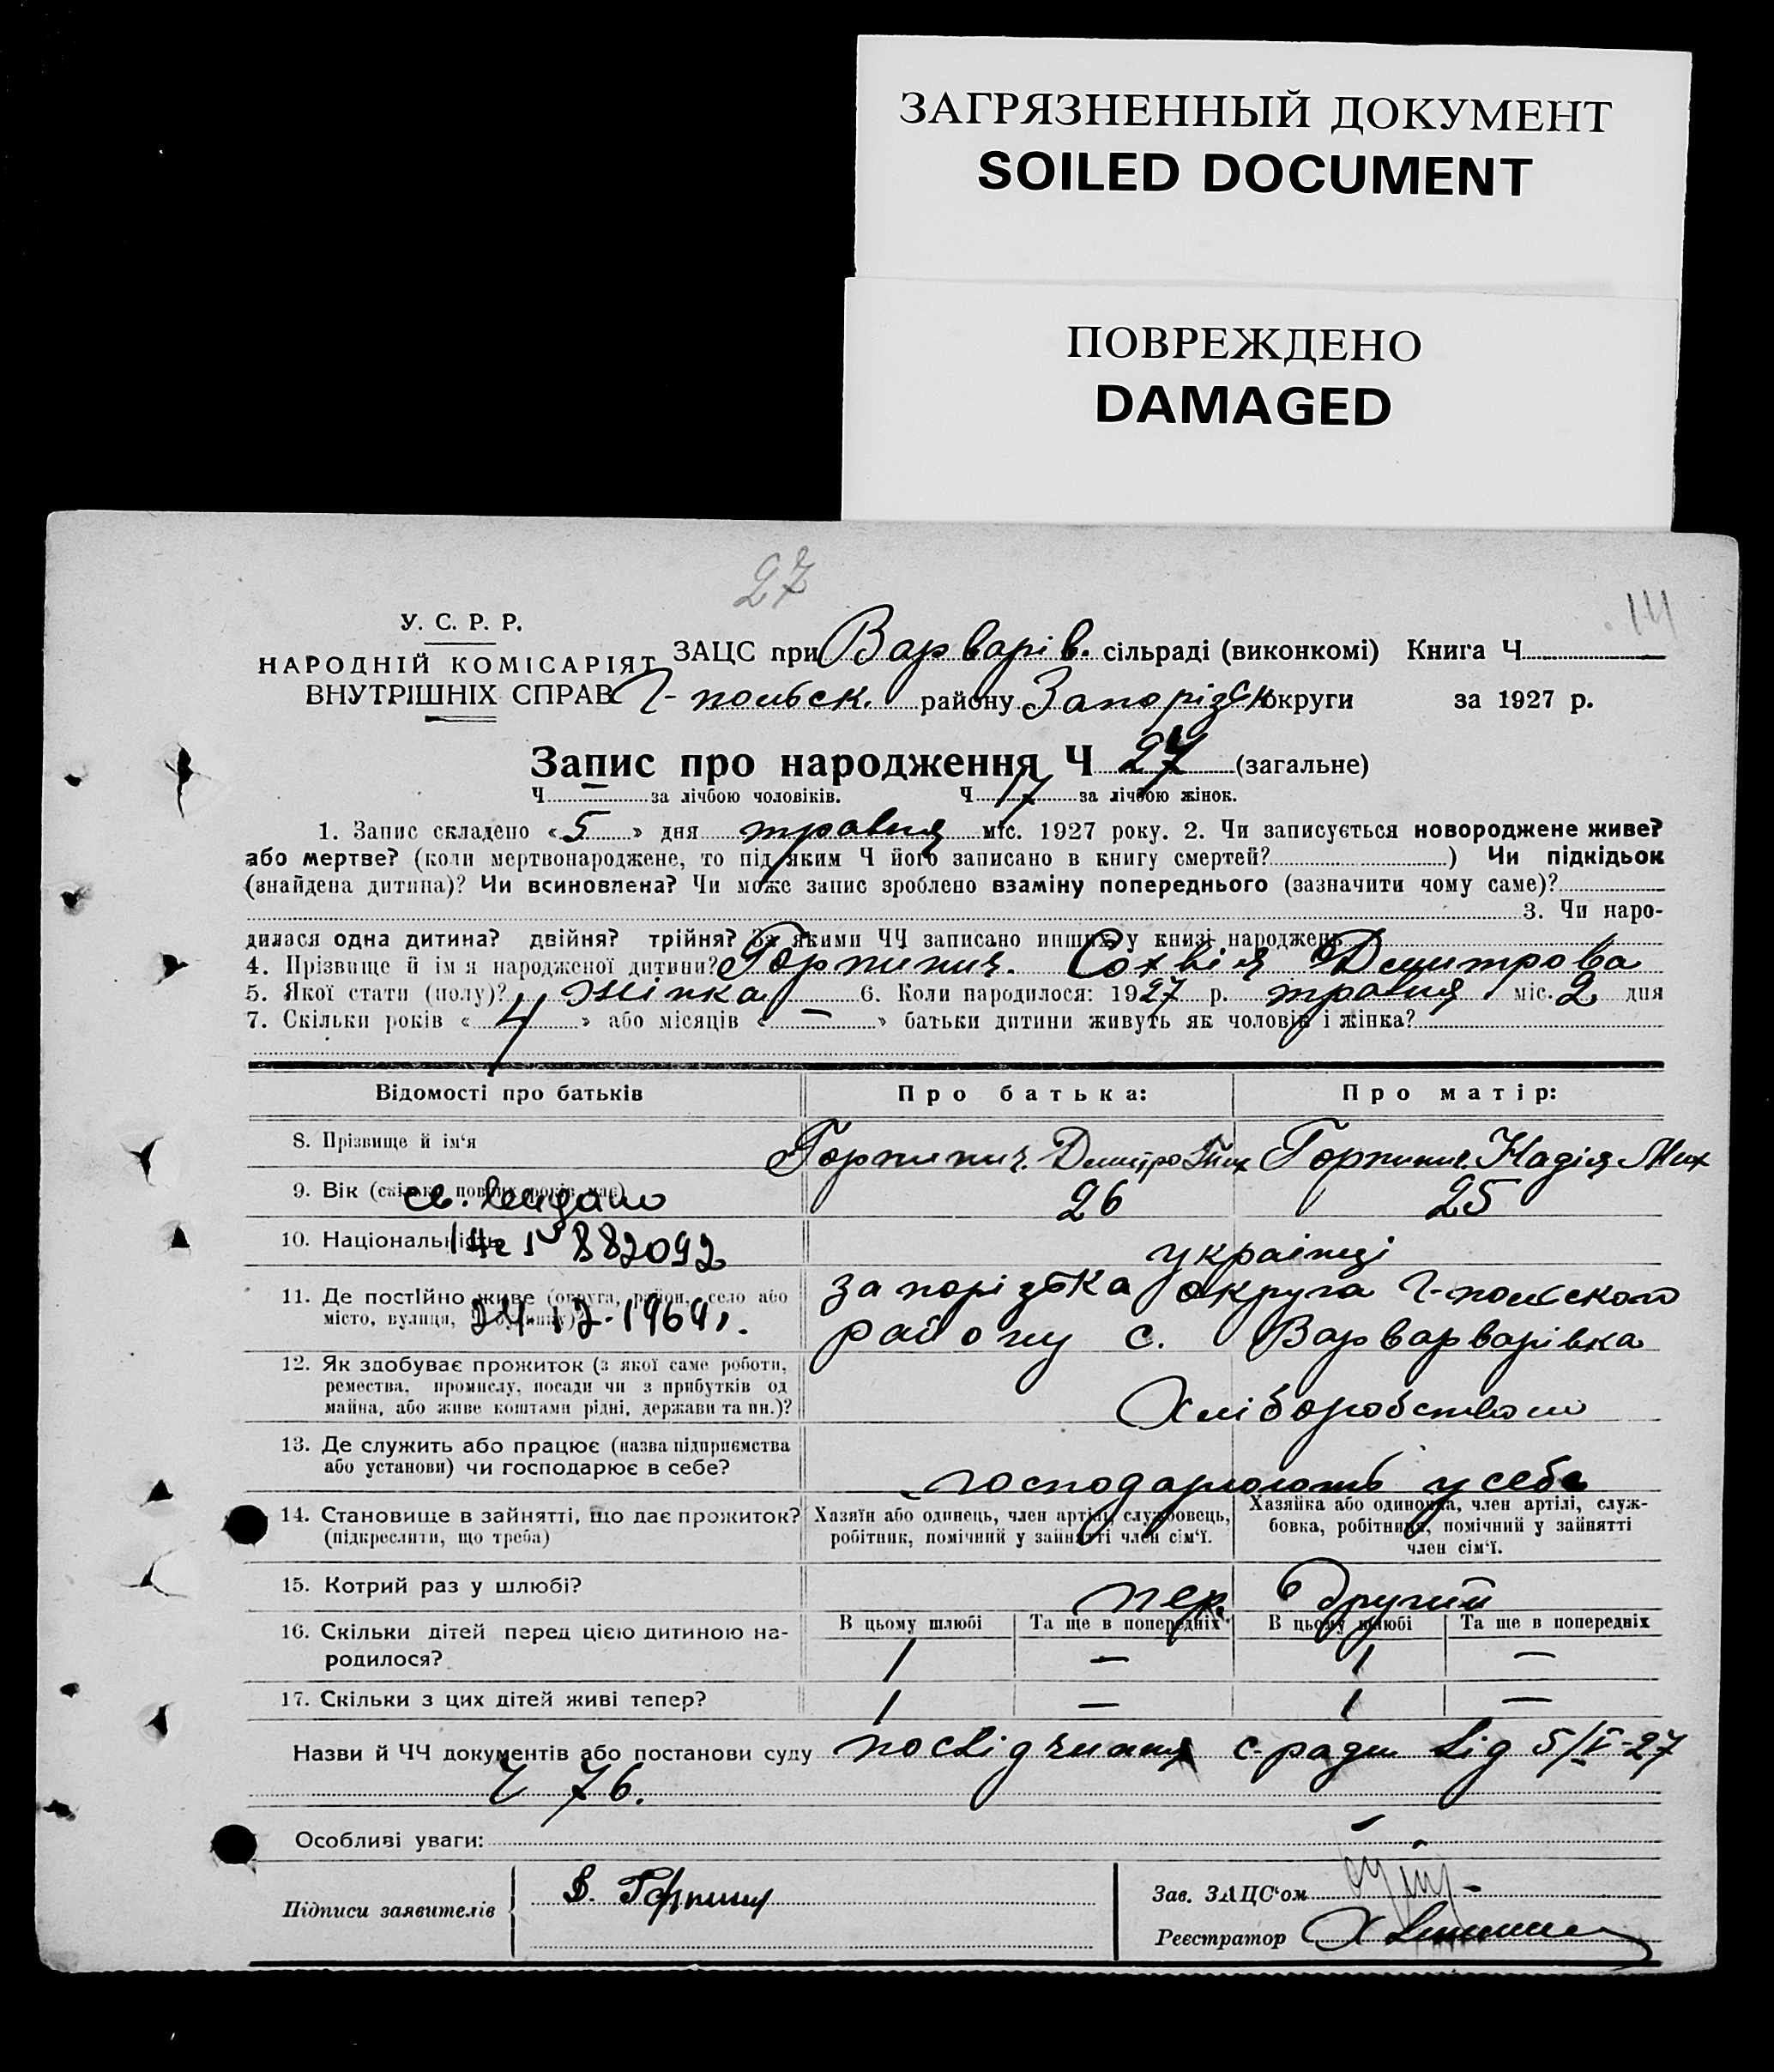 ЗАГРЯЗНЕННЫЙ ДОКУМЕНТ
SOILED DOCUMENT
ПОВРЕЖДЕНО
DAMAGED
27
У. С. Р. Р.
НАРОДНІЙ КОМІСАРІЯТ
ВНУТРІШНІХ СПРАВ
ЗАЦС при Варварів. сільраді (виконкомі) Книга Ч
Г-польськ. району Запорізьк округи за 1927 р.
Запис про народження Ч 27 (загальне)
Ч — за лічбою чоловіків. Ч 17 за лічбою жінок.
1. Запис складено «5» дня травня міс. 1927 року. 2. Чи записується новороджене живе?
або мертве? (коли мертвонароджене, то під яким Ч його записано в книгу смертей? ) Чи підкідьок
(знайдена дитина)? Чи всиновлена? Чи може запис зроблено взаміну попереднього (зазначити чому саме)?
3. Чи наро-
дилася одна дитина? двійня? трійня? За якими ЧЧ записано инших у книзі народжень
4. Прізвище й ім я народженої дитини? Горпинич. Сохвія Дмитрова
5. Якої стати (полу)? жінка 6. Коли народилося: 1927 р. травня міс. 2 дня
7. Скільки років «4» або місяців «—» батьки дитини живуть як чоловік і жінка?
Відомості про батьків Про батька: Про матір:
8. Прізвище й ім'я Горпинич. Дмитро Тих Горпинич. Надія Мих
9. Вік (скільки повних років має) 26 25
св. видано
10. Національність українці
882092
11. Де постійно живе (округа, район, село або запорізька округа Г-польського
місто, вулиця, району с. Варварварівка
1964 г.
12. Як здобуває прожиток (з якої саме роботи,
ремества, промислу, посади чи з прибутків од
майна, або живе коштами рідні, держави та ин.)? Хліборобством
13. Де служить або працює (назва підприємства
або установи) чи господарює в себе? господарюють у себе
14. Становище в зайнятті, що дає прожиток? Хазяїн або одинець, член артілі, службовець, Хазяйка або одиночка, член артілі, служ-
(підкреслити, що треба) робітник, помічний у зайнятті член сім'ї. бовка, робітниця, помічний у зайнятті
член сім'ї.
15. Котрий раз у шлюбі? пер. другий
16. Скільки дітей перед цією дитиною на- В цьому шлюбі Та ще в попередніх В цьому шлюбі Та ще в попередніх
родилося? 1 — 1 —
17. Скільки з цих дітей живі тепер? 1 — 1 —
Назви й ЧЧ документів або постанови суду посвідчиння с-ради від 5/V-27
Ч 76.
Особливі уваги: —
Підписи заявителів Д. Горпинич Зав. ЗАЦС'ом
Реєстратор